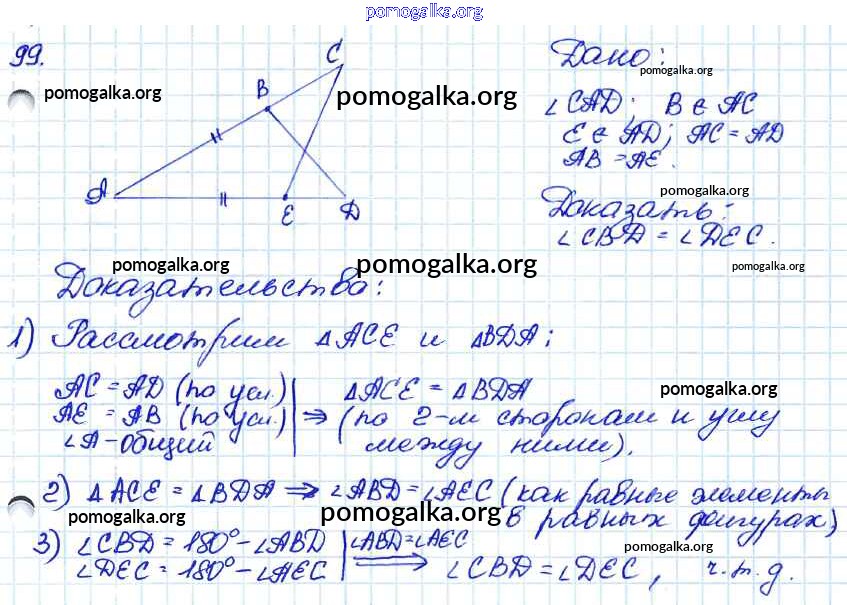 pomogalka.org
99.
C
B
A
E
D
pomogalka.org
pomogalka.org
Дано:
pomogalka.org
∠CAD; B ∈ AC
E ∈ AD; AC = AD
AB = AE.
pomogalka.org
Доказать:
∠CBD = ∠DEC.
pomogalka.org
pomogalka.org
pomogalka.org
Доказательство:
1) Рассмотрим △ACE и △BDA;
AC = AD (по усл.) | △ACE = △BDA
pomogalka.org
AE = AB (по усл.) | ⇒ (по 2-м сторонам и углу
∠A-общий | между ними).
2) △ACE = △BDA ⇒ ∠ABD = ∠AEC (как равные элементы
в равных фигурах)
pomogalka.org
pomogalka.org
3) ∠CBD = 180° - ∠ABD | ∠ABD = ∠AEC
pomogalka.org
∠DEC = 180° - ∠AEC | ⇒ ∠CBD = ∠DEC, ч.т.д.